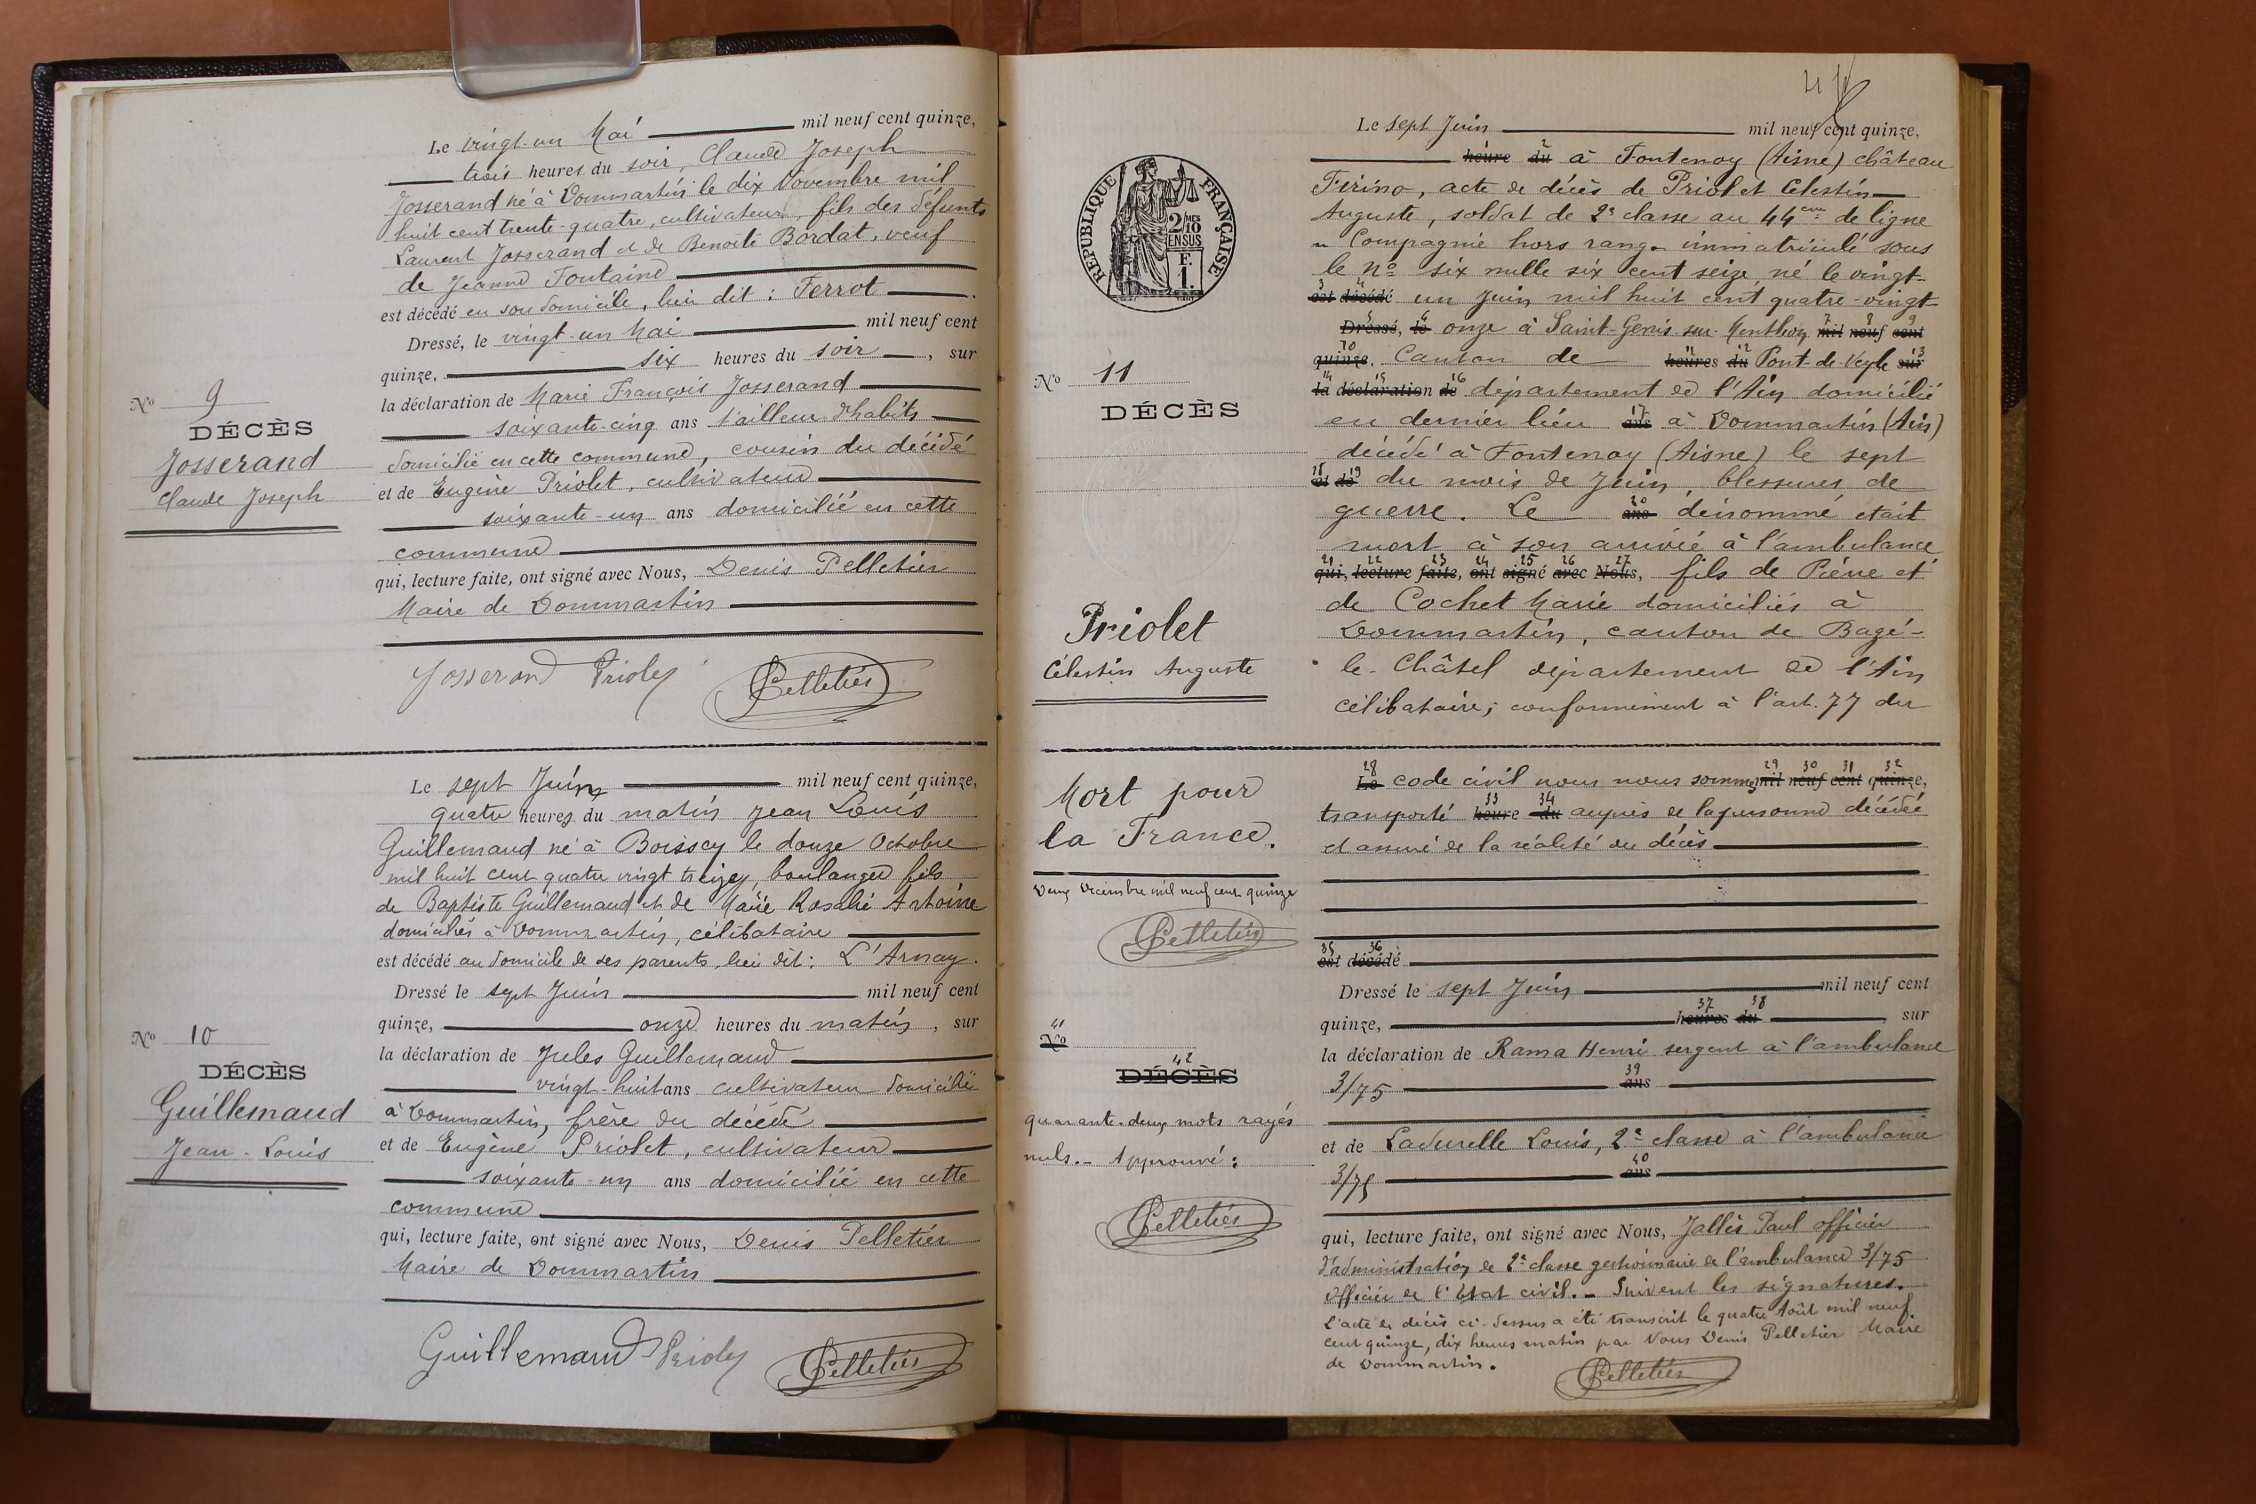 Le vingt-un Mai mil neuf cent quinze,
trois heures du soir, Claude Joseph
Josserand né à Dommartin le dix Novembre mil
huit cent trente-quatre, cultivateur, fils des défunts
Laurent Josserand et de Benoîte Bordat, veuf
de Jeanne Fontaine
est décédé en son domicile, lieu dit : Ferrot.
Dressé, le vingt-un Mai mil neuf cent
quinze, six heures du soir, sur
la déclaration de Marie François Josserand
soixante-cinq ans tailleur d'habits
domicilié en cette commune, cousin du décédé
et de Eugène Priolet, cultivateur
soixante-un ans domicilié en cette
commune
qui, lecture faite, ont signé avec Nous, Denis Pelletier
Maire de Dommartin
Josserand Priolet Pelletier
No 9
DÉCÈS
Josserand
Claude Joseph
Le sept Juin mil neuf cent quinze,
quatre heures du matin Jean Louis
Guillemaud né à Boissey le douze Octobre
mil huit cent quatre vingt treize, boulanger fils
de Baptiste Guillemaud et de Marie Rosalie Antoine
domiciliés à Dommartin, célibataire
est décédé au domicile de ses parents, lieu dit : L'Arnay.
Dressé le sept Juin mil neuf cent
quinze, onze heures du matin, sur
la déclaration de Jules Guillemaud
vingt-huit ans cultivateur domicilié
à Dommartin, frère du décédé
et de Eugène Priolet, cultivateur
soixante-un ans domicilié en cette
commune
qui, lecture faite, ont signé avec Nous, Denis Pelletier
Maire de Dommartin
Guillemaud Priolet Pelletier
No 10
DÉCÈS
Guillemaud
Jean-Louis
RÉPUBLIQUE FRANÇAISE
2 MES
/10
EN SUS
F.
1.
No 11
DÉCÈS
Priolet
Célestin Auguste
Mort pour
la France.
Deux Décembre mil neuf cent quinze
Pelletier
41
No
42
DÉCÈS
quarante-deux mots rayés
nuls.- Approuvé :
Pelletier
Le sept Juin mil neuf cent quinze,
heure du 2 à Fontenoy (Aisne) château
Firino, acte de décès de Priolet Célestin
Auguste, soldat de 2e classe au 44eme de ligne
Compagnie hors rang immatriculé sous
le No six mille six cent seize, né le vingt-
3 4
est décédé un Juin mil huit cent quatre-vingt
5 6 7 8 9
Dressé, le onze à Saint-Genis-sur-Menthon mil neuf cent
10 11 12 13
quinze, Canton de heures du Pont-de-Veyle sur
14 15 16
la déclaration de département de l'Ain domicilié
17
en dernier lieu ans à Dommartin (Ain)
décédé à Fontenoy (Aisne) le sept
18 19
et de du mois de Juin, blessures de
20
guerre. Le ans dénommé était
mort à son arrivée à l'ambulance
21 22 23 24 25 26 27
qui, lecture faite, ont signé avec Nous, fils de Pierre et
de Cochet Marie domiciliés à
Dommartin, canton de Bagé-
le-Châtel département de l'Ain
célibataire; conformément à l'art. 77 du
28 29 30 31 32
Le code civil nous nous sommes mil neuf cent quinze,
33 34
transporté heure du auprès de la personne décédée
et assuré de la réalité du décès
35 36
est décédé
Dressé le sept Juin mil neuf cent
37 38
quinze, heures du, sur
la déclaration de Rama Henri sergent à l'ambulance
39
3/75 ans
et de Ladurelle Louis, 2e classe à l'ambulance
40
3/75 ans
qui, lecture faite, ont signé avec Nous, Jallès Paul officier
d'administration de 2e classe gestionnaire de l'ambulance 3/75
officier de l'état civil.- Suivent les signatures.-
L'acte de décès ci-dessus a été transcrit le quatre Août mil neuf
cent quinze, dix heures matin par Nous Denis Pelletier Maire
de Dommartin.
Pelletier